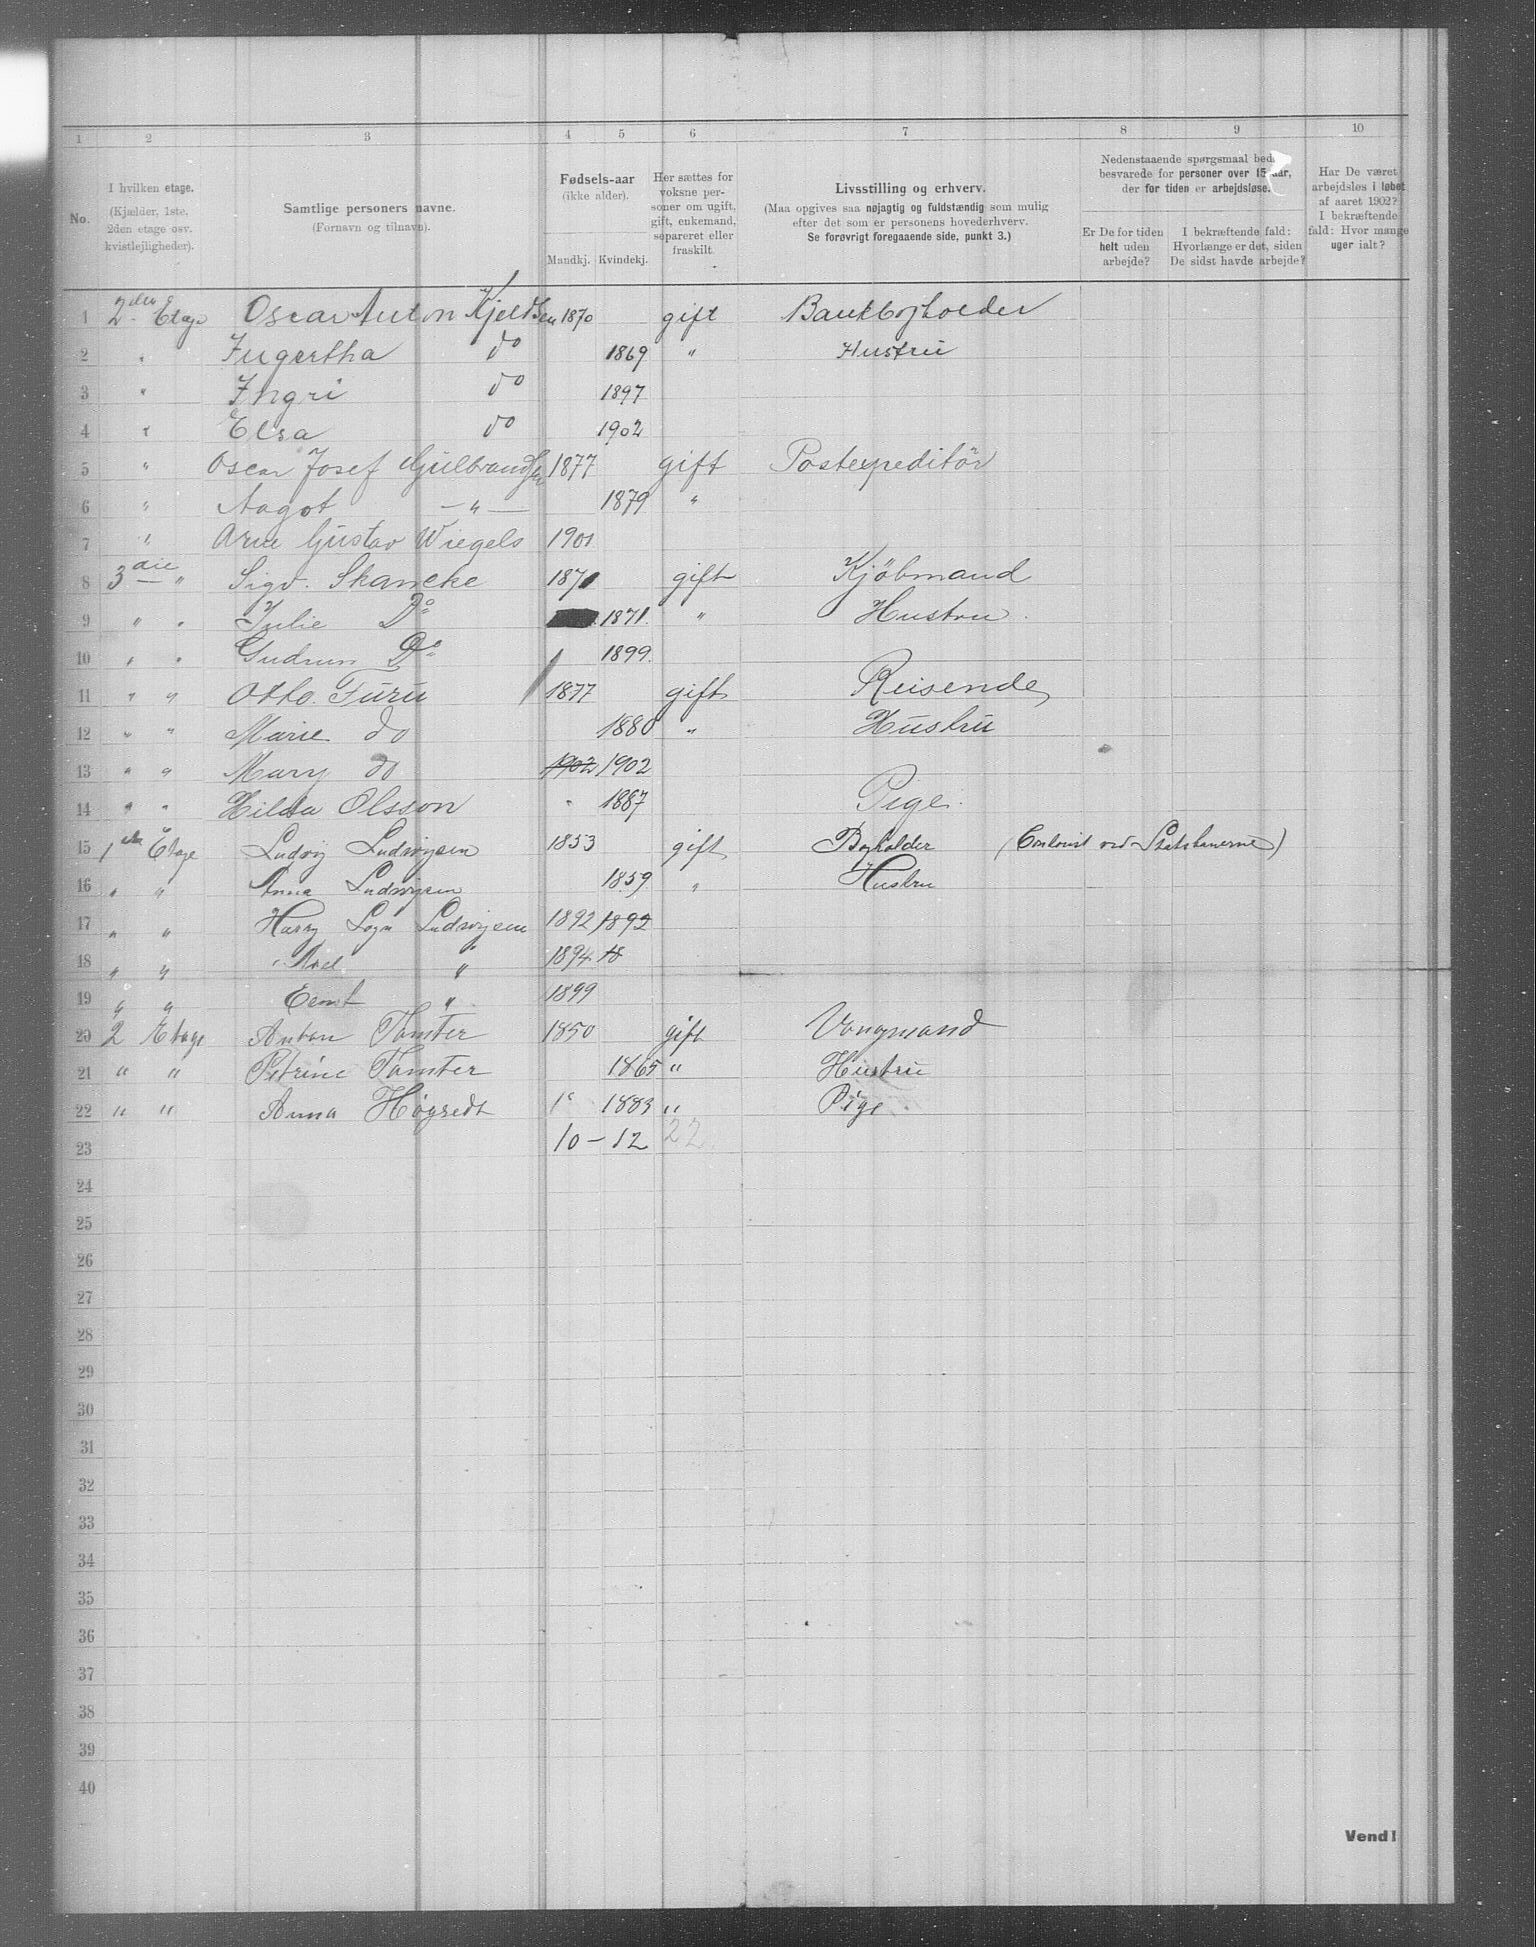 1 2 3 4 5 6 7 8 9 10
No.
I hvilken etage.
(Kjælder, 1ste, 2den etage osv. kvistlejligheder).
Samtlige personers navne.
(Fornavn og tilnavn).
Fødsels-aar
(ikke alder).
Mandkj. Kvindekj.
Her sættes for voksne personer om ugift, gift, enkemand, separeret eller fraskilt.
Livsstilling og erhverv.
(Maa opgives saa nøjagtig og fuldstændig som mulig efter det som er personens hovederhverv.
Se forøvrigt foregaaende side, punkt 3.)
Nedenstaaende spørgsmaal bedes besvarede for personer over 15 aar, der for tiden er arbejdsløse.
Er De for tiden helt uden arbejde?
I bekræftende fald: Hvorlænge er det, siden De sidst havde arbejde?
Har De været arbejdsløs i løbet af aaret 1902? I bekræftende fald: Hvor mange uger ialt?
1 2den Etage Oscar Anton Kjeldsen 1870 gift Bankbogholder
2 " Ingertha do 1869 " Hustru
3 " Ingri do 1897
4 " Elsa do 1902
5 " Oscar Josef Gulbrandsen 1877 gift Postexpeditör
6 " Aagot —"— 1879 "
7 " Arne Gustav Wiegels 1901
8 3die — " Sigv. Skancke 1870 gift Kjøbmand
9 " " Julie Do 1871. " Hustru.
10 " " Gudrun Do 1899.
11 " " Otto. Furu 1877 gift Reisende
12 " " Marie do 1880 " Hustru
13 " " Mary do 1902 1902
14 " " Hilda Olsson " 1887 Pige.
15 1ste Etage Ludvig Ludvigsen 1853 gift Bogholder ( ved Statsbanerne)
16 " " Anna Ludvigsen 1859 " Hustru
17 " " Harry Ludvigsen 1892 1892
18 " " Axel " 1894 18
19 " " Ernst " 1899
20 2 Etage Anton Tomter 1850 gift Vongmand
21 " " Petrine Tomter 1865 " Hustru
22 " " Anna Høgsedt 1883 " Pige
23 10 – 12 22
24
25
26
27
28
29
30
31
32
33
34
35
36
37
38
39
40
Vend!